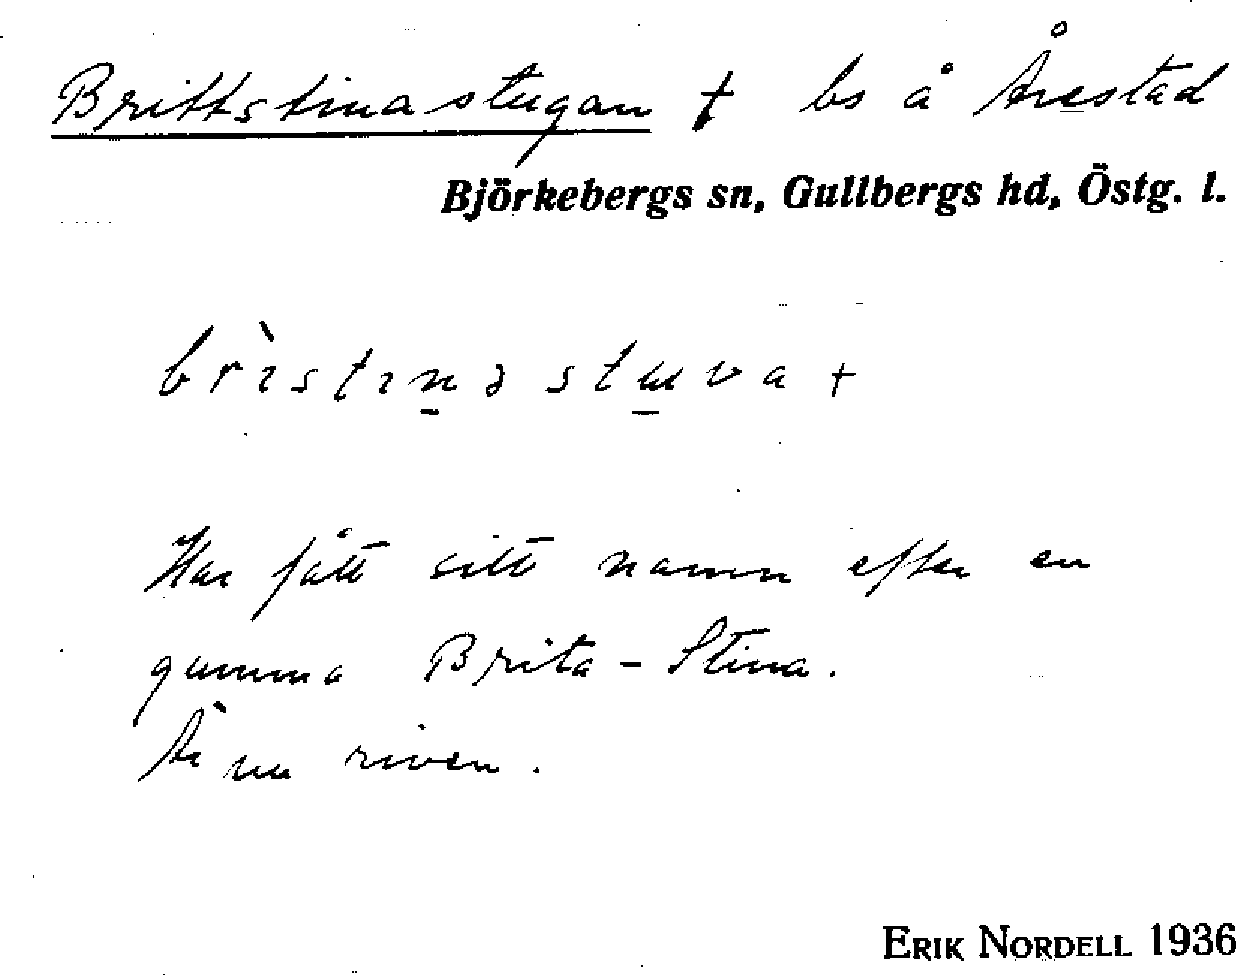 Brittstinastugan † bs å Årestad
Björkebergs sn, Gullbergs hd, Östg. l.
brìstınə stɯva +
Har fått sitt namn efter en
gumma Brita-Stina.
Är nu riven.
ERIK NORDELL 1936